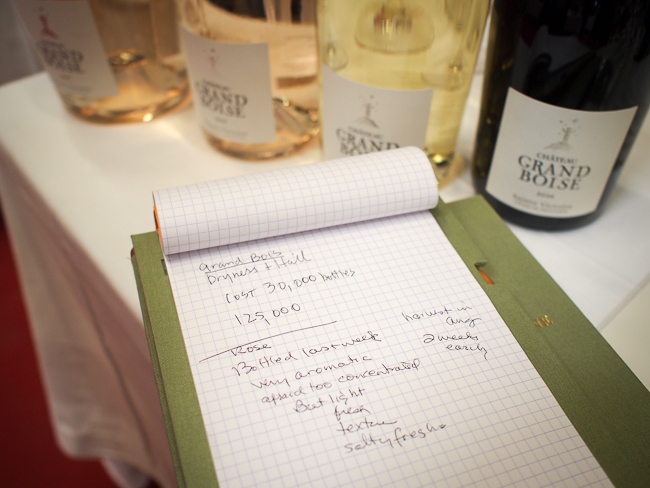 CHÂTEAU
GRAND
BOISE
CHÂTEAU
GRAND
BOISE
CHÂTEAU
GRAND
CHÂTEAU
GRAND
BOISE
Grand Bois
Dryness + Hail
Lost 30,000 bottles
125,000
Rose
Bottled last week
very aromatic
afraid too concentrated
But light
fresh
texture
salty fresh
harvest in
Aug
2 weeks
early